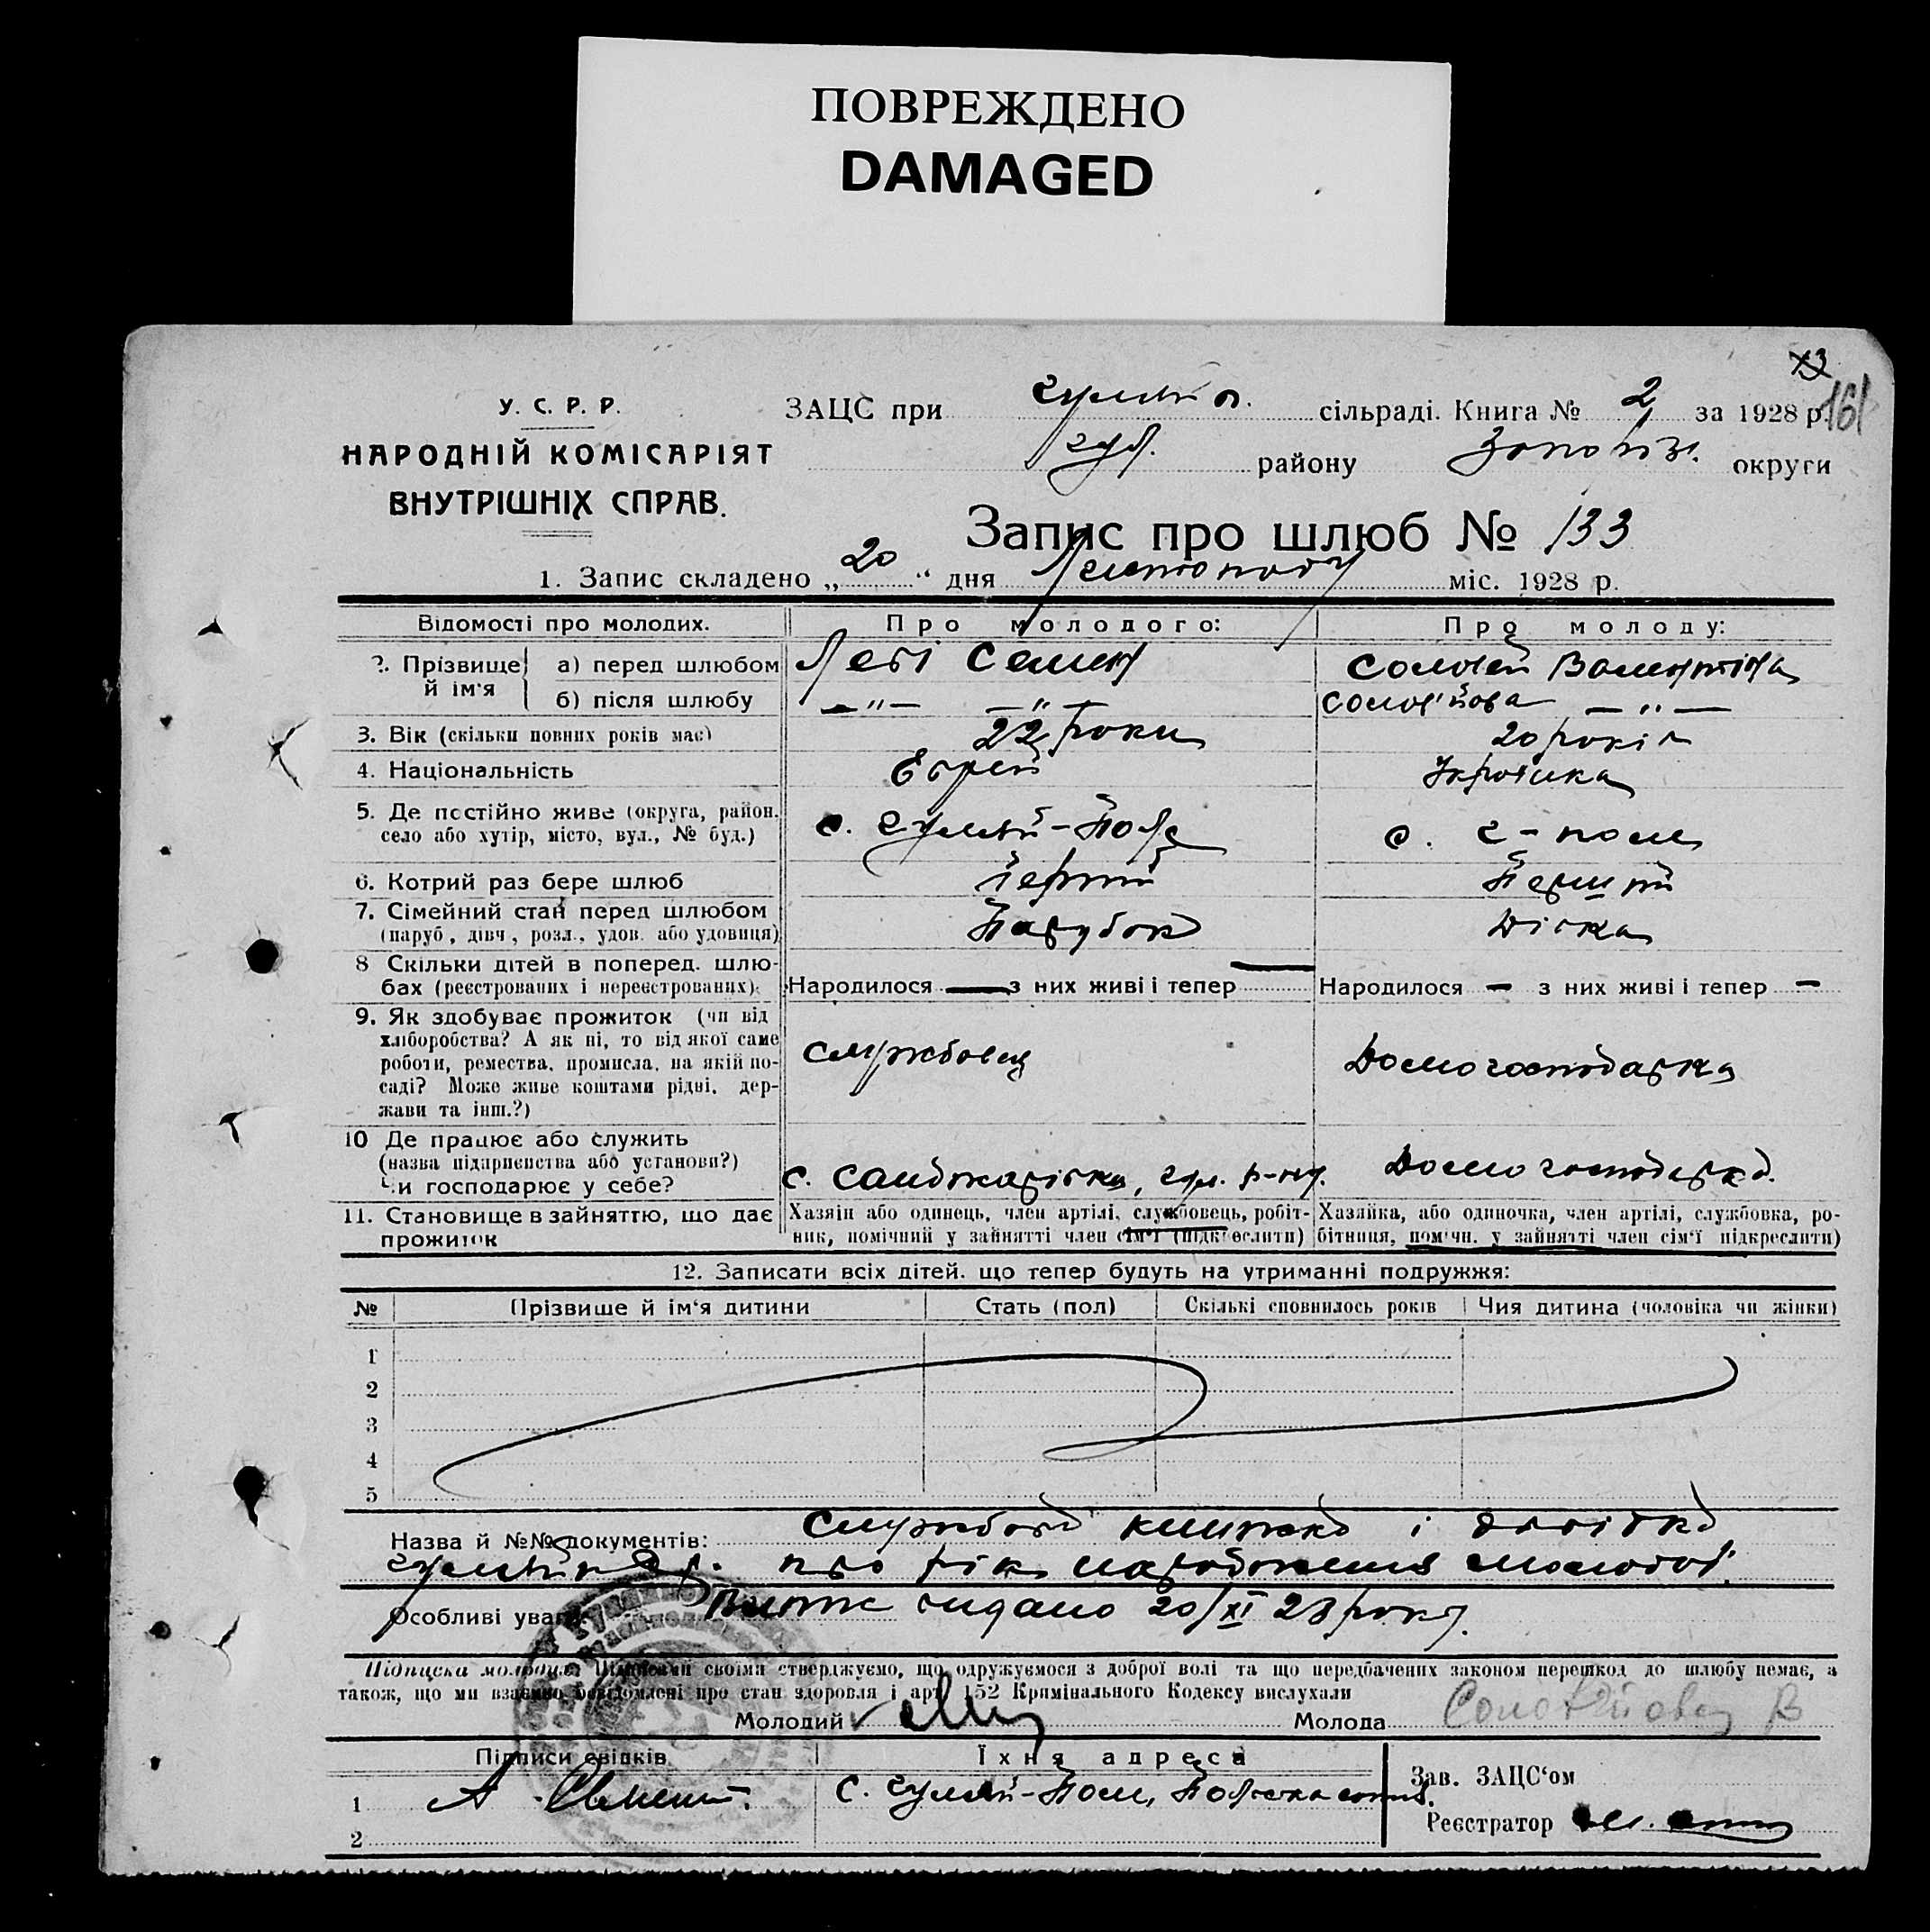 ПОВРЕЖДЕНО
DAMAGED
73
161
У. С. Р. Р.
НАРОДНІЙ КОМІСАРІЯТ
ВНУТРІШНІХ СПРАВ.
ЗАЦС при сільраді. Книга № 2 за 1928 р.
району Запоріз. округи
Запис про шлюб № 133
1. Запис складено „20“ дня Листопаду міс. 1928 р.
Відомості про молодих. Про молодого: Про молоду:
2. Прізвище й ім'я а) перед шлюбом Леві Семен Соловей Валентіна
б) після шлюбу —„— —„— Солов'йова —„—
3. Вік (скільки повних років має) 22 роки 20 років
4. Національність Єврей Українка
5. Де постійно живе (округа, район, село або хутір, місто, вул., № буд.) с. Гуляй-Поле с. Г-поле
6. Котрий раз бере шлюб Перший Перший
7. Сімейний стан перед шлюбом (паруб., дівч., розл., удов. або удовиця) Парубок Дівка
8 Скільки дітей в поперед. шлюбах (реєстрованих і нереєстрованих). Народилося — з них живі і тепер — Народилося — з них живі і тепер —
9. Як здобуває прожиток (чи від
хліборобства? А як ні, то від якої саме
роботи, ремества, промисла, на якій по-
саді? Може живе коштами рідні, дер-
жави та інш.?) Службовец Домогосподарка
10 Де працює або служить
(назва підприємства або установи?)
Чи господарює у себе? с. Санжарівка, Гул. р-ну. Домогосподарка.
11. Становище в зайняттю, що дає прожиток
Хазяїн або одинець, член артілі, службовець, робіт-
ник, помічний у зайнятті член сім'ї (підкреслити)
Хазяйка, або одиночка, член артілі, службовка, ро-
бітниця, помічн. у зайнятті член сім'ї підкреслити)
12. Записати всіх дітей, що тепер будуть на утриманні подружжя:
№ Прізвище й ім'я дитини Стать (пол) Скількі сповнилось років Чия дитина (чоловіка чи жінки)
1
2
3
4
5
Назва й №№ документів: Службова книжка і довідка
про рік народження молодої.
Особливі уваги: Витяг видано 20/XI 28 року.
Підписка молодих: Підписами своїми стверджуємо, що одружуємося з доброї волі та що передбачених законом перешкод до шлюбу немає, а
також, що ми взаємно повідомлені про стан здоровля і арт. 152 Кримінального Кодексу вислухали
Молодий Молода Соловйова В
Підписи свідків Їхня адреса
1 А. с. Гуляй-Поле,
2
Зав. ЗАЦС‘ом
Реєстратор